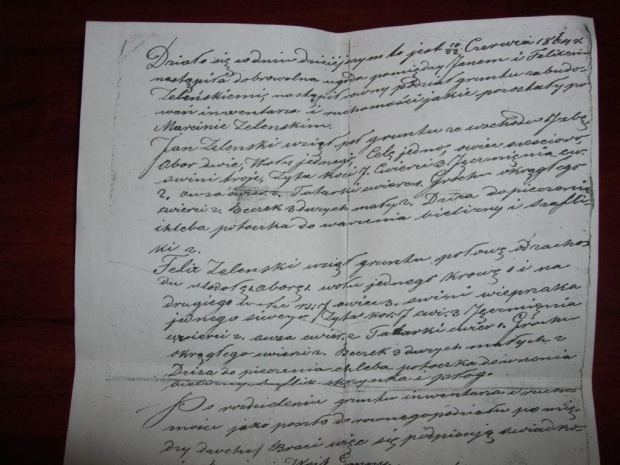 Działo się w dniu dzisiejszym to jest 10/22 Czerwca 1864 r
nastąpiła dobrowolna ugoda pomiędzy Janem i Felixem
Zeleńskiemi, nastąpił równy podział gruntu zabudo
wań inwentarza i ruchomości jakie pozostały po
Marcinie Zelenskim.
Jan Zelenski wziął poł gruntu ze wschodu Izbę
Obor dwie, Wołu jednego, Cielę jedno, owiec sześcioro,
swini troje, Żyta korcy 7. cwierci 3 Jęczmienia cw.
2. owsa cwier. 2. Tatarki cwierc 1. Grochu okrągłego
cwierci 2. Beczek 3 dwuch małych 2. Dzieza do pieczenia
chleba potoczka do warzenia bielizny i szafli
ki 2.
Felix Zelenski wziął gruntu połowę od zacho
du stodołę 1 oborę 1. wołu jednego krowę 1 i na
drugiego wołu owiec 3. swini wieprzaka
jednego Żyta kor. 7 cwi. 3 Jęczmienia
cwierci 2. owsa cwier. 2 Tatarki cwierc 1. Grochu
okrągłego cwierci 2. Beczek 3 dwuch małych 2
Dzieza do pieczenia chleba potoczka do warzenia
bielizny szaflik skrzynka i
Po rozdzieleniu gruntu inwentarza i rucho
mości jako poszło do rownego podziału po mię
dzy dwuch Braci więc się podpisują swiadko